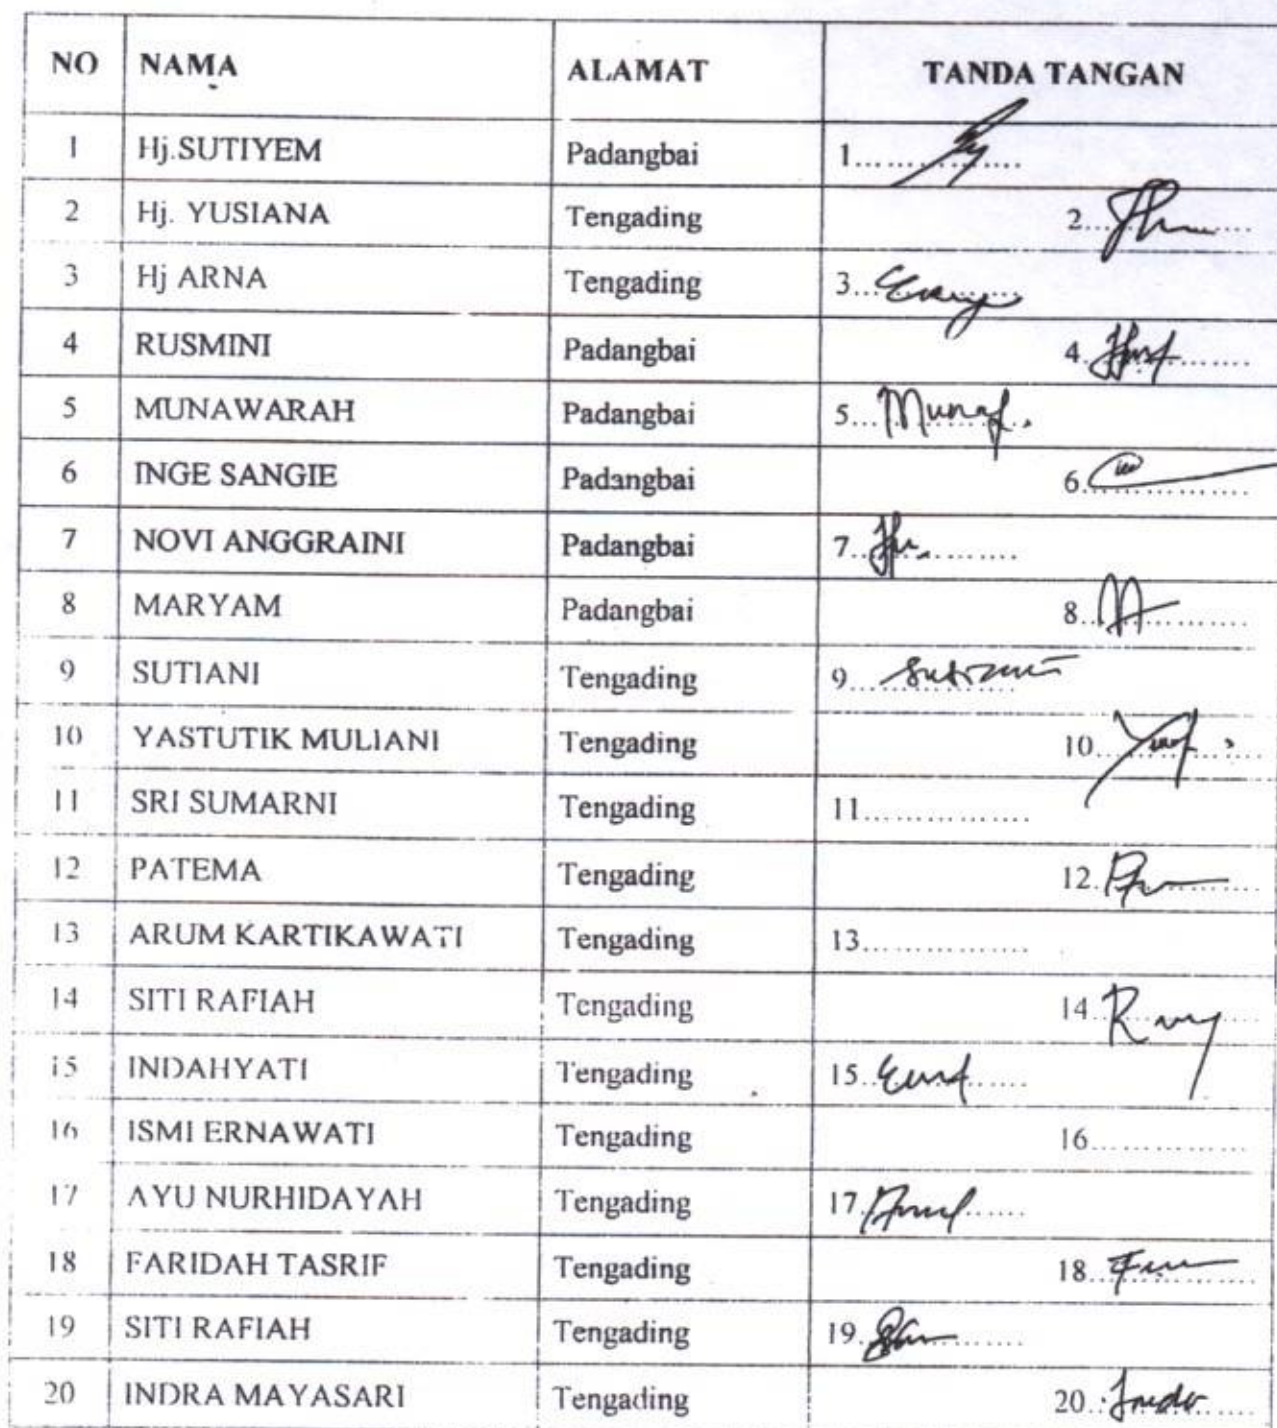 NO NAMA ALAMAT TANDA TANGAN
1 Hj.SUTIYEM Padangbai 1..................
2 Hj. YUSIANA Tengading 2..................
3 Hj ARNA Tengading 3..................
4 RUSMINI Padangbai 4..................
5 MUNAWARAH Padangbai 5.... Munaf.
6 INGE SANGIE Padangbai 6..................
7 NOVI ANGGRAINI Padangbai 7..................
8 MARYAM Padangbai 8..................
9 SUTIANI Tengading 9.... Sutiani
10 YASTUTIK MULIANI Tengading 10..................
11 SRI SUMARNI Tengading 11..................
12 PATEMA Tengading 12..................
13 ARUM KARTIKAWATI Tengading 13..................
14 SITI RAFIAH Tengading 14..................
15 INDAHYATI Tengading 15..................
16 ISMI ERNAWATI Tengading 16..................
17 AYU NURHIDAYAH Tengading 17..................
18 FARIDAH TASRIF Tengading 18..................
19 SITI RAFIAH Tengading 19..................
20 INDRA MAYASARI Tengading 20..................